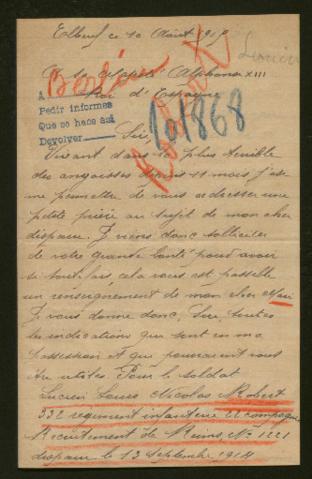 Elbeuf ce 10 Août 1915
A sa Majesté Alphonse XIII
Roi d'Espagne
Berlin
A
Pedir informes
Que se hace así
Devolver
701868
Sire,
Vivant dans la plus terrible
des angoisses depuis 11 mois, j'ose
me permettre de vous adresser une
petite prière au sujet de mon cher
disparu. Je viens donc solliciter
de votre grande bonté pour avoir
si toutefois, cela vous est possible
un renseignement de mon cher mari
Je vous donne donc, Sire, toutes
les indications qui sont en ma
possession et qui pourraient vous
être utiles Pour le soldat
Lucien Louis Nicolas Robert
332 regiment infanterie
Recrutement de Reims, No 1221
disparu le 13 Septembre 1914